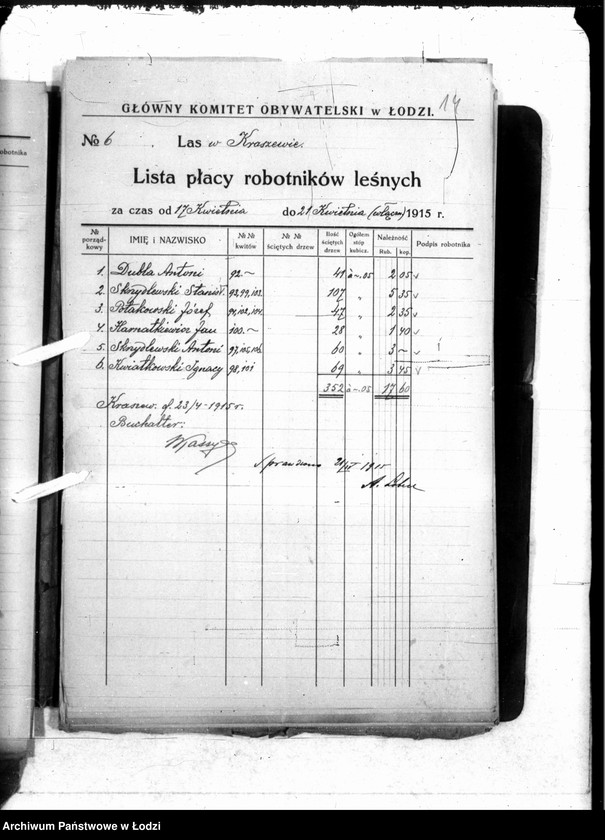 17
GŁÓWNY KOMITET OBYWATELSKI w ŁODZI.
№ 6 Las w Kraszewie.
Lista płacy robotników leśnych
za czas od 17 Kwietnia do 21 Kwietnia (włącz) 1915 r.
№ porząd-kowy IMIĘ i NAZWISKO № № kwitów № № ściętych drzew Ilość ściętych drzew Ogółem stóp kubicz. Należność Rub. kop. Podpis robotnika
1. Dubla Antoni 92.~ 41 à ~.05 2 05
2. Skrydlewski Stanisł. 93,99,103. 107 „ 5 35
3. Polakowski Józef 47 „ 2 35
4. Kamatkiewicz Jan 100.~ 28 „ 1 40
5. Skrydlewski Antoni 60 „ 3 ~
6. Kwiatkowski Ignacy 98,101 69 „ 3 45
352 à ~.05 17 60
Kraszew. d. 23/4 - 1915 r.
Buchalter:
Sprawdzono 1915
A.
robotnika
Archiwum Państwowe w Łodzi